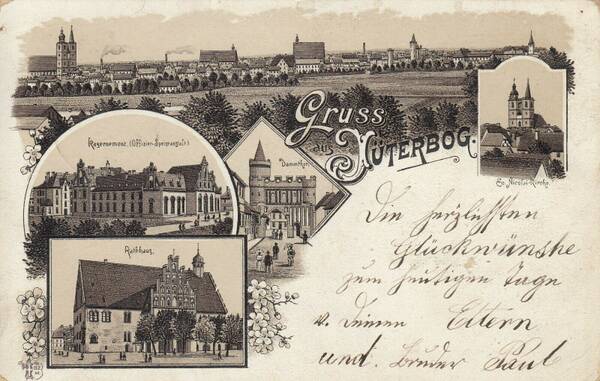 Gruss
aus
Jüterbog.
Regenemenz. (Offizier-Speiseanstalt.)
Dammthor.
St. Nicolai-Kirche.
Rathhaus.
Die herzlichsten
Glückwünsche
zum heutigen Tage
v. Deinen Eltern
und Bruder Paul